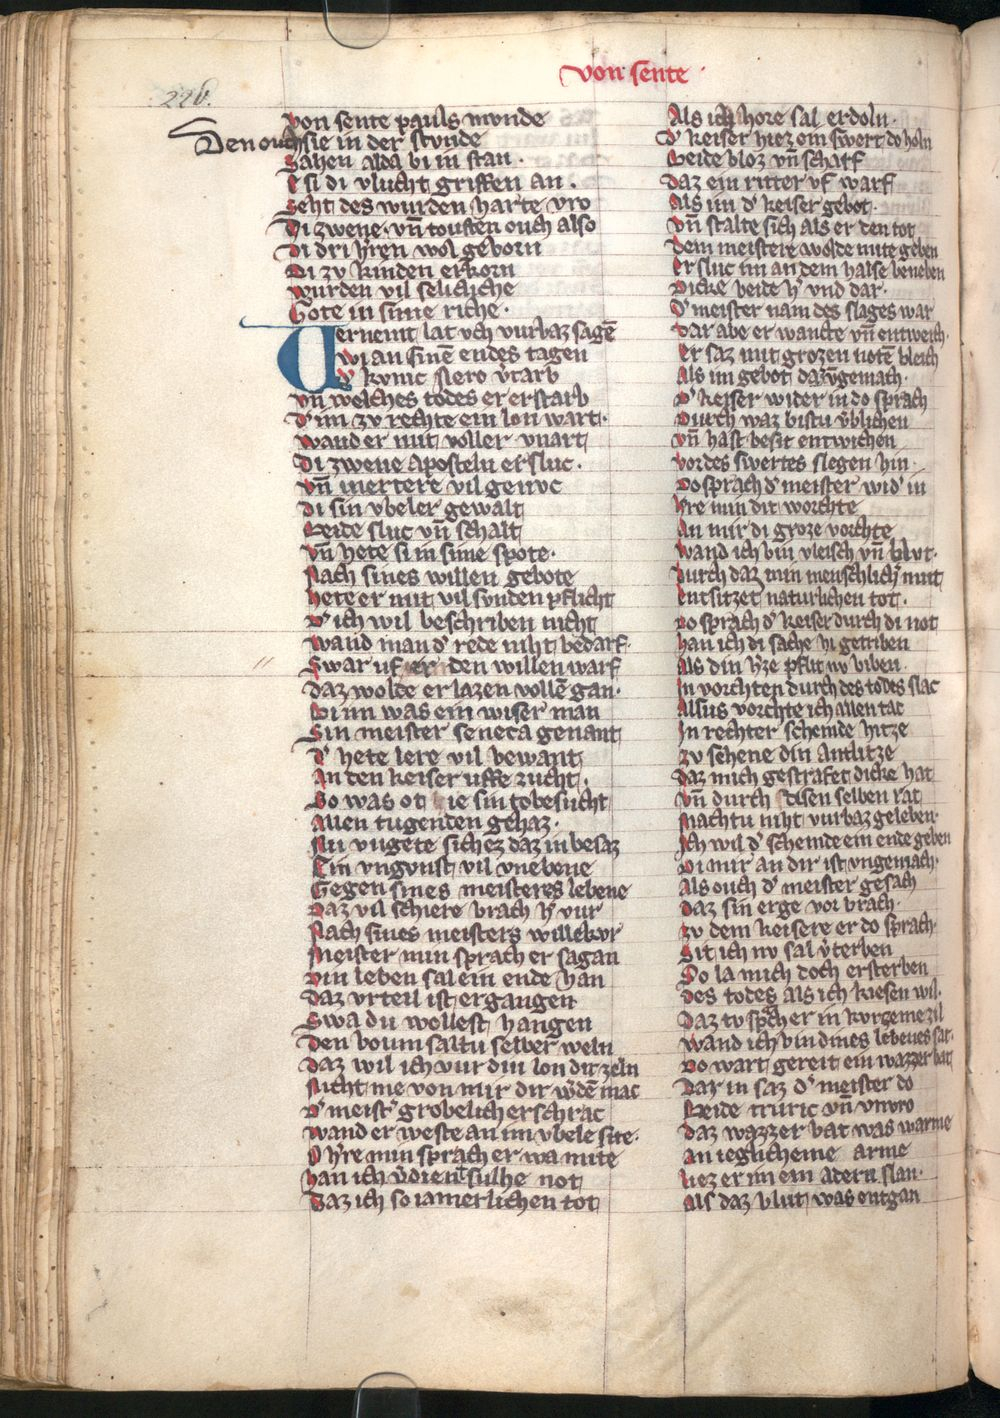 von sente
226.
von sente pauls mvnde
Den ouch sie in der stvnde
Sahen alda bi in stan.
E si di vlucht griffen an.
Seht des wurden harte vro
Di zwene. vn̄ touften ouch also
Di dri h'ren wol geborn
Di zv kinden erkorn
wurden vil selicliche
Gote in sime riche.
Vernemt lat vch vurbaz sagē
wi an sinē endes tagen
d' konic Nero v'tarb
vn̄ welches todes er erstarb
D' im zv rechte ein lon wart.
wand er mit voller vnart
Di zwene Aposteln ersluc.
vn̄ mertere vil genvc
di sin vbeler gewalt
Beide sluc vn̄ schalt
vn̄ hete si in sime spote.
Nach sines willen gebote
hete er mit vil svnden pflicht
D' ich wil beschriben nicht
wand man d' rede niht bedarf.
Swar uf er den willen warf
daz wolde er lazen vollē gan.
bi im was ein wiser man
Sin meister seneca genant
D' hete lere vil bewant
An den keiser uffe zucht.
So was ot ie sin tobesucht
Allen tugenden gehaz.
Nu vugete sich ez daz in besaz
Ein vngvnst vil vnebene
Gegen sines meisteres lebene
Daz vil schiere brach h' vur
Nach sines meisters willekvr
Meister min sprach er sagan
din leben sal ein ende han
daz vrteil ist ergangen
Swa du wollest hangen
den boum saltu selber weln
daz wil ich vur din lon dir zeln
Nicht me von mir dir w'dē mac
D' meist' grobelich erschrac
wand er weste an im vbele site.
O h're min sprach er wa mite
han ich v'dient sulhe not
daz ich so iamerlichen tot
Als ich hore sal erdoln.
D' keiser hiez ein swert do holn
Beide bloz vn̄ scharf
daz ein ritter vf warf
Als im d' keiser gebot.
vn̄ stalte sich als er den tot
Dem meistere wolde mite geben
Er sluc im an dem halse beneben
Dicke beide h' vnd dar.
D' meister nam des slages war
Dar abe er wancte vn̄ entweich.
Er saz mit grozen notē bleich
Als im gebot daz v'gemach.
D' keiser wider in do sprach
Durch waz bistu v'blichen
vn̄ hast besit entwichen
vor des swertes slegen hin.
Do sprach d' meister wid' in
h're min dit worchte
An mir di groze vorchte
wand ich bin vleisch vn̄ blvt.
Durch daz min menschlich' mut
Entsitzet naturlichen tot.
Do sprach d' keiser durch di not
han ich di sache hi getriben
Als din h'ze pflit nv biben.
In vorchten durch des todes slac
Alsus vorchte ich allen tac
In rechter schemde hitze
zv sehene din Antlitze
daz mich gestrafet dicke hat
vn̄ durch disen selben rat
Machtu niht vurbaz geleben.
Ich wil d' schemde ein ende geben
Di mir an dir ist vngemach.
Als ouch d' meister gesach
daz sin erge vor brach.
zv dem keisere er do sprach.
Sit ich nv sal v'terben
So la mich doch ersterben
des todes als ich kiesen wil.
Daz tv sprach er in korzeme zil
wand ich bin dines lebenes sat.
Do wart gereit ein wazzer bat
Dar in saz d' meister do
Beide truric vn̄ vnvro
daz wazzer bat was warme
An ieglicheme arme
liez er im ein adern slan.
Als daz blut was entgan